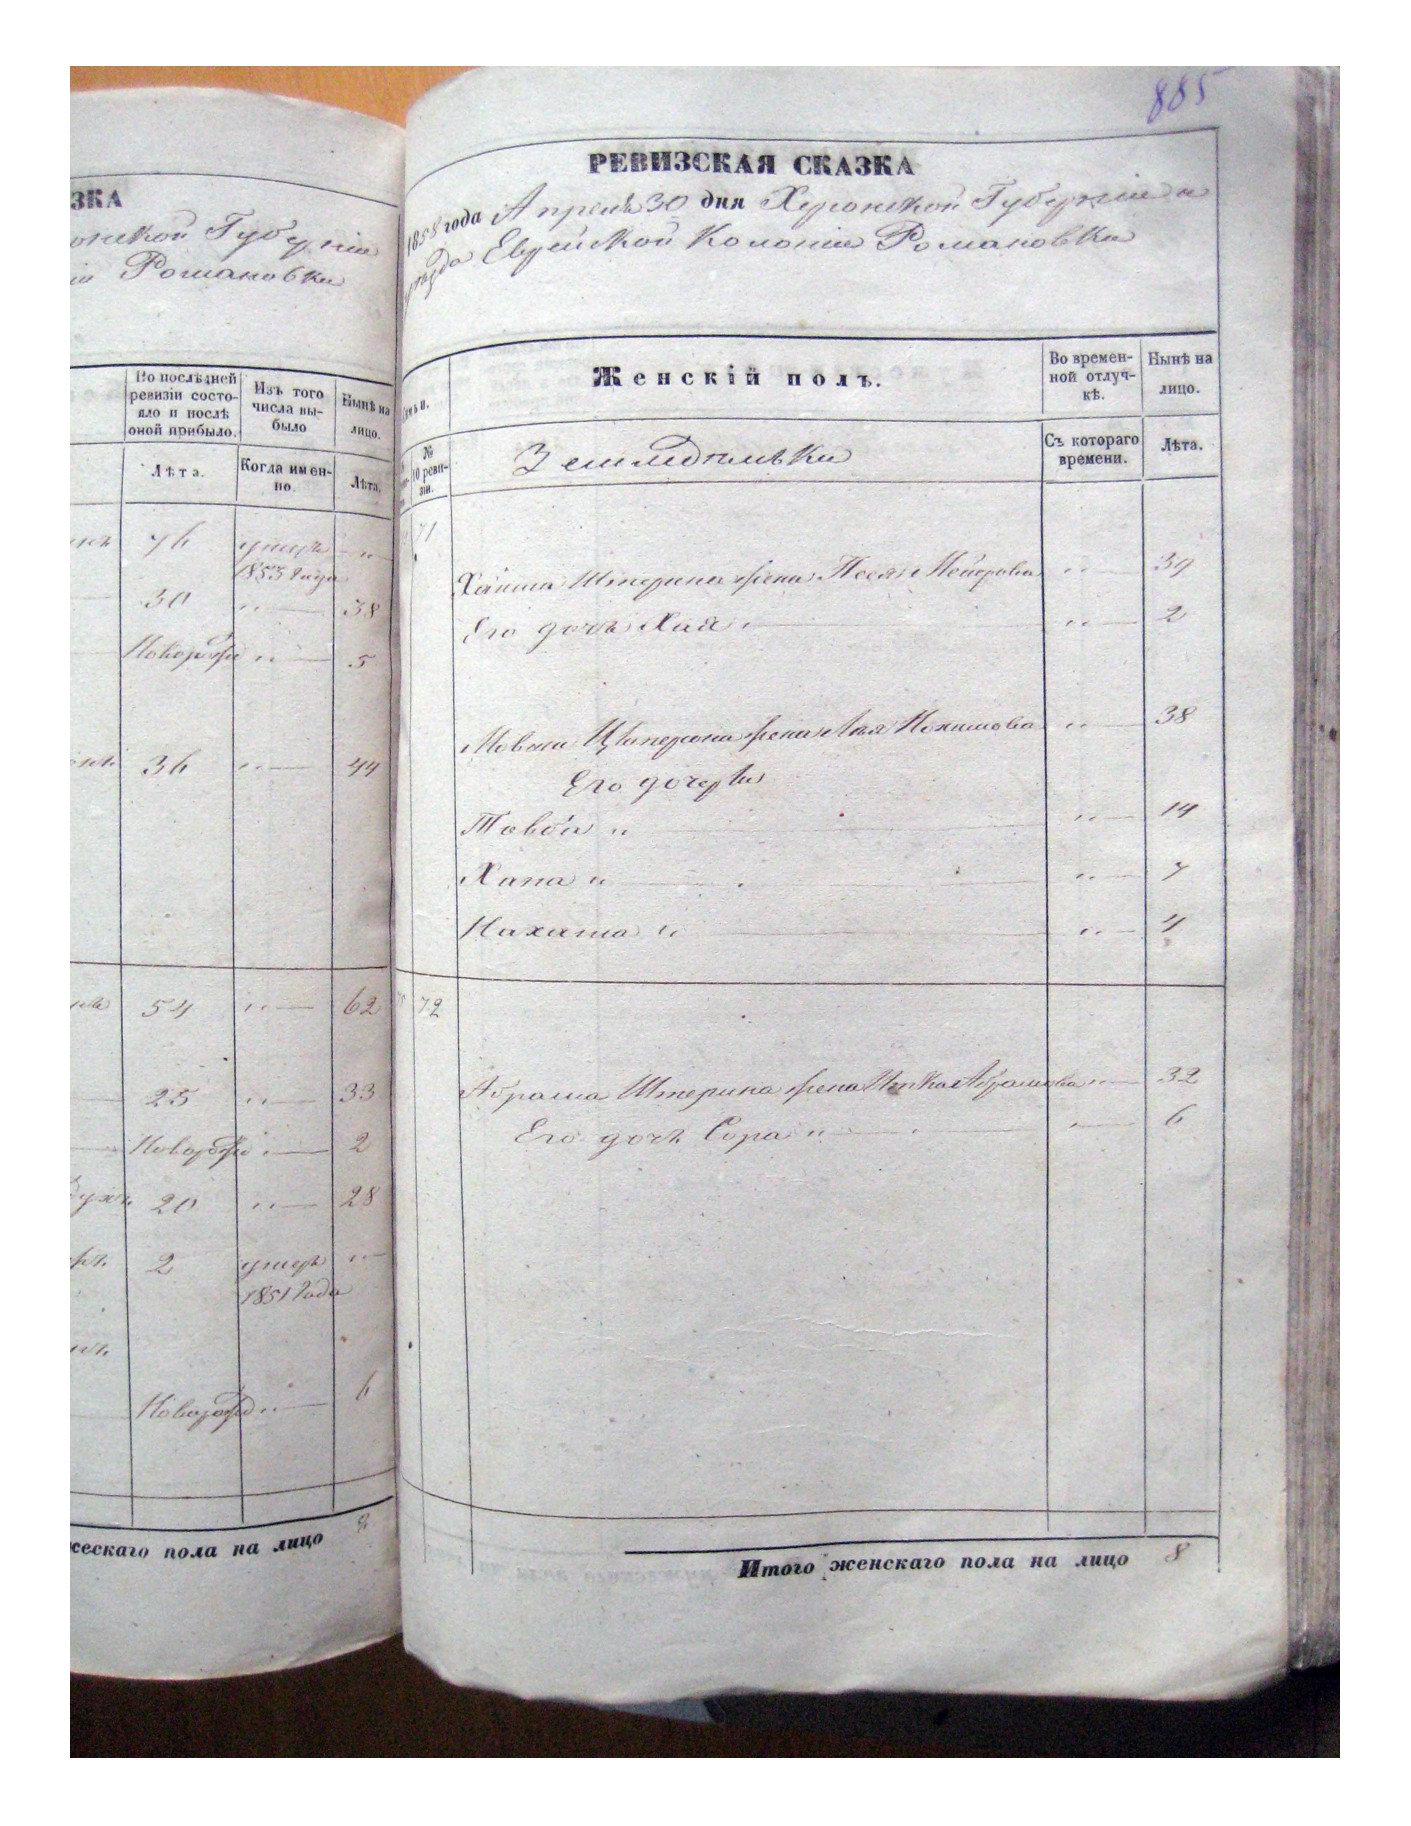 885
ЗКА
онской Губерніи
Романовки
Во послѣдней
ревизіи состо-
яло и послѣ
оной прибыло.
Изъ того
числа вы-
было
Нынѣ на
лицо.
Лѣта.
Когда имен-
но.
Лѣта.
76 умеръ „
1853 года
30 „ 38
Новорож „ 5
36 „ 44
54 „ 62
25 „ 33
Новорож „ 2
20 „ 28
2 умеръ „
1851 года
Новорож „ 6
жескаго пола на лицо 8
РЕВИЗСКАЯ СКАЗКА
1858 года Апреля 30 дня Херсонской Губерніи и
уѣзда Еврейской Колоніи Романовки
Женскій полъ.
Во времен-
ной отлуч-
кѣ.
Нынѣ на
лицо.
№
10 реви-
зіи.
Земледѣльки
Съ котораго
времени.
Лѣта.
71
Хаима Штерина жена Песя Мейерова „ 39
Его дочь Хая „ 2
Мовши Штерина жена Лея „ 38
Его дочери
Товба „ „ 14
Хана „ „ 7
Нахама „ „ 4
72
Абрама Штерина жена Абрамова „ 32
Его дочь Сора „ 6
Итого женскаго пола на лицо 8